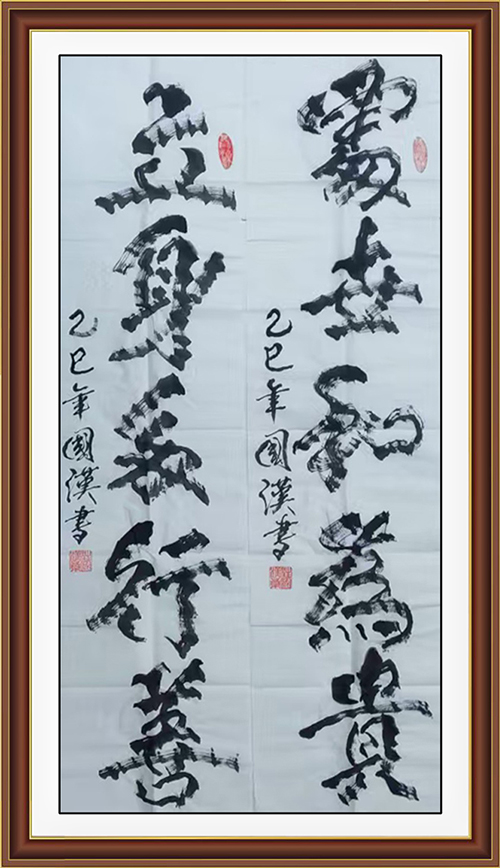 處世和為貴
乙巳年國漢書
立身行善
乙巳年國漢書